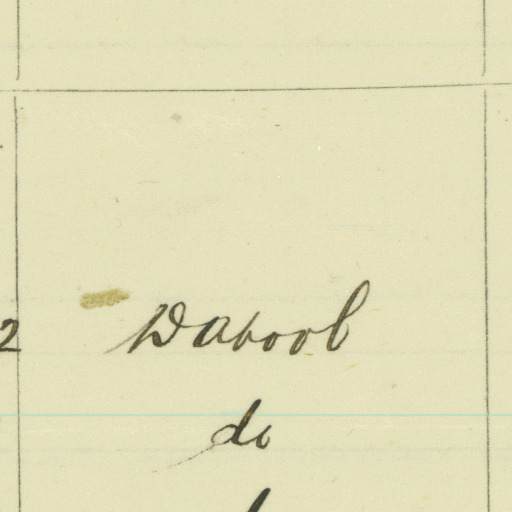 2 Dabool
do